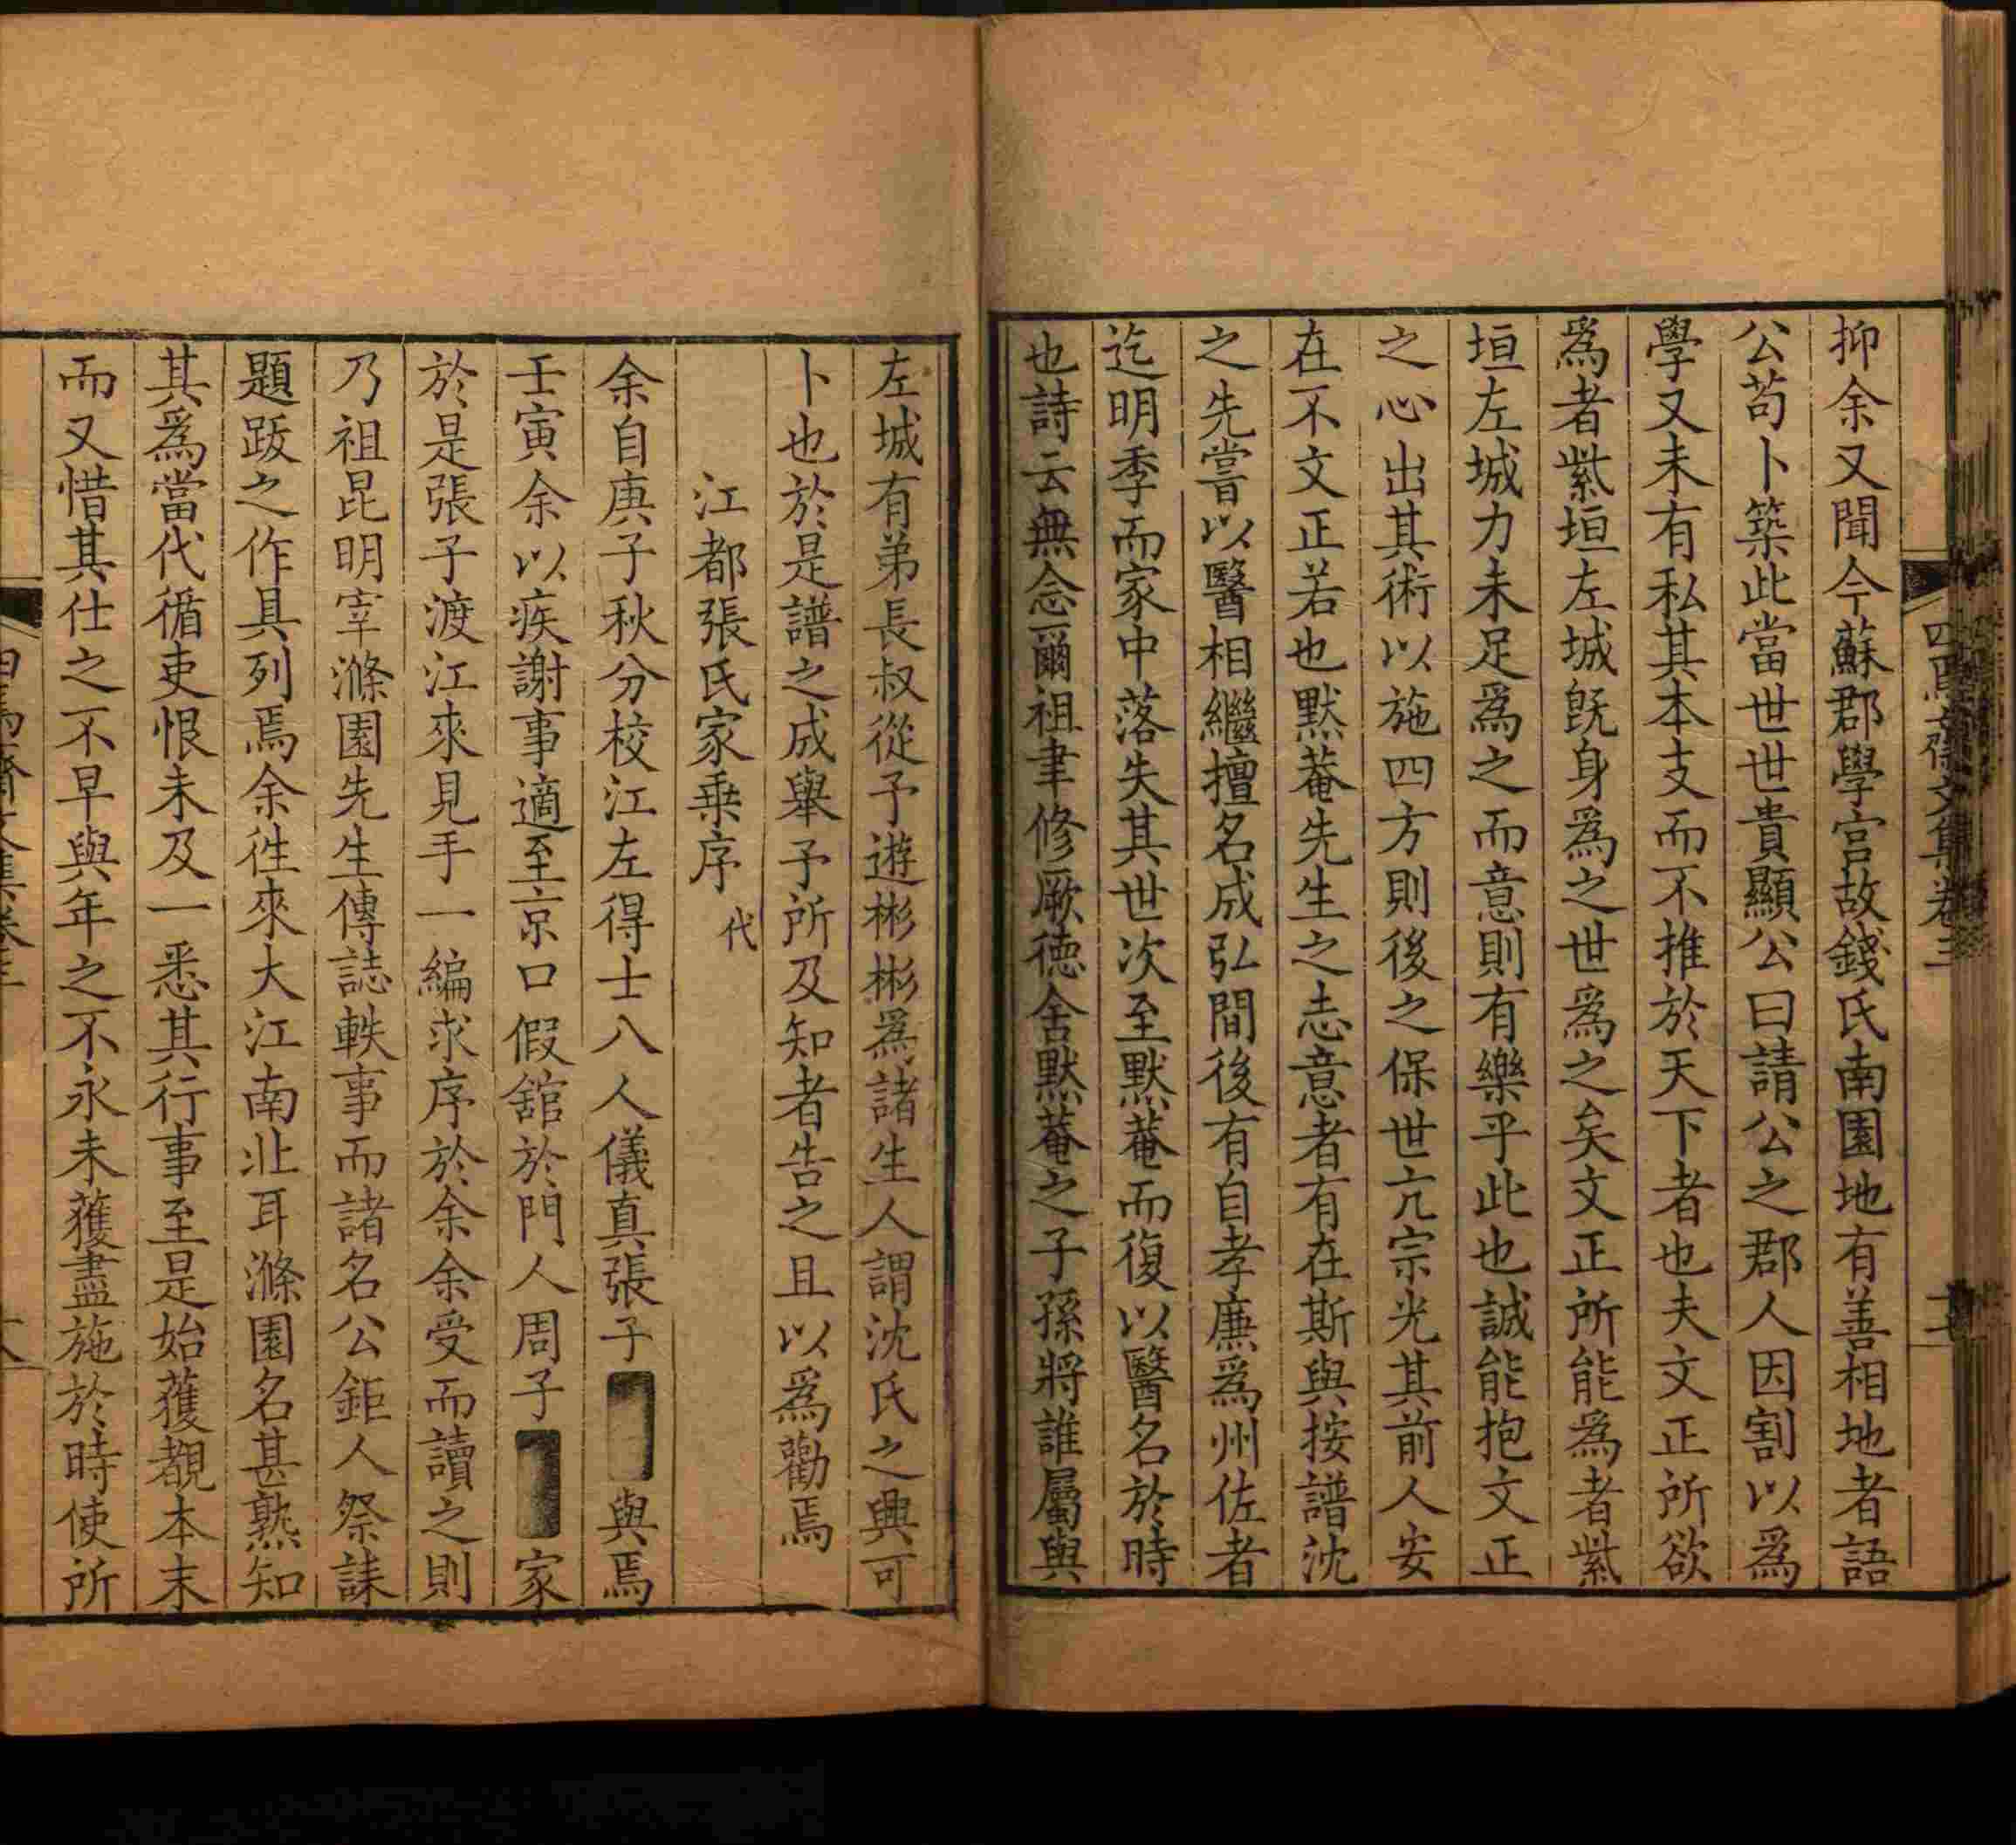 四焉齋文集卷三
抑余又聞今蘇郡學宮故錢氏南園地有善相地者語
公苟卜築此當世世貴顯公曰請公之郡人因割以爲
學又未有私其本支而不推於天下者也夫文正所欲
爲者紫垣左城旣身爲之世爲之矣文正所能爲者紫
垣左城力未足爲之而意則有樂乎此也誠能抱文正
之心出其術以施四方則後之保世亢宗光其前人安
在不文正若也默菴先生之志意者有在斯與按譜沈
之先嘗以醫相繼擅名成弘間後有自孝廉爲州佐者
迄明季而家中落失其世次至默菴而復以醫名於時
也詩云無念爾祖聿修厥德舍默菴之子孫將誰屬與
左城有弟長叔從予遊彬彬爲諸生人謂沈氏之興可
卜也於是譜之成舉予所及知者告之且以爲勸焉
江都張氏家乘序 代
余自庚子秋分校江左得士八人儀真張子與焉
壬寅余以疾謝事適至京口假舘於門人周子家
於是張子渡江來見手一編求序於余余受而讀之則
乃祖昆明宰滌園先生傳誌軼事而諸名公鉅人祭誄
題跋之作具列焉余徃來大江南北耳滌園名甚熟知
其爲當代循吏恨未及一悉其行事至是始獲覩本末
而又惜其仕之不早與年之不永未獲盡施於時使所